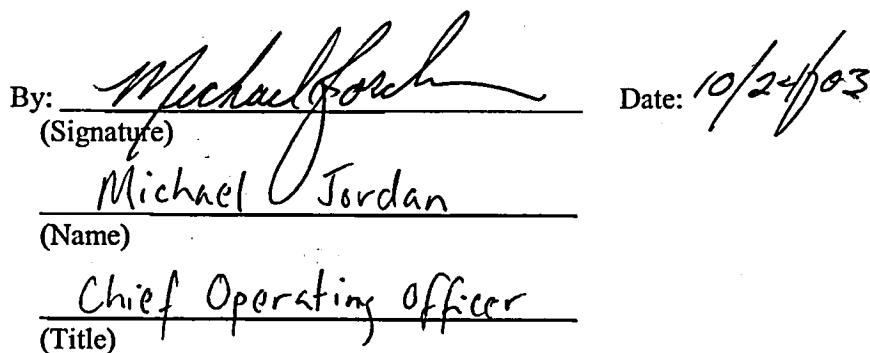 By: Michael Jordan Date: 10/24/03
(Signature)
Michael Jordan
(Name)
Chief Operating Officer
(Title)